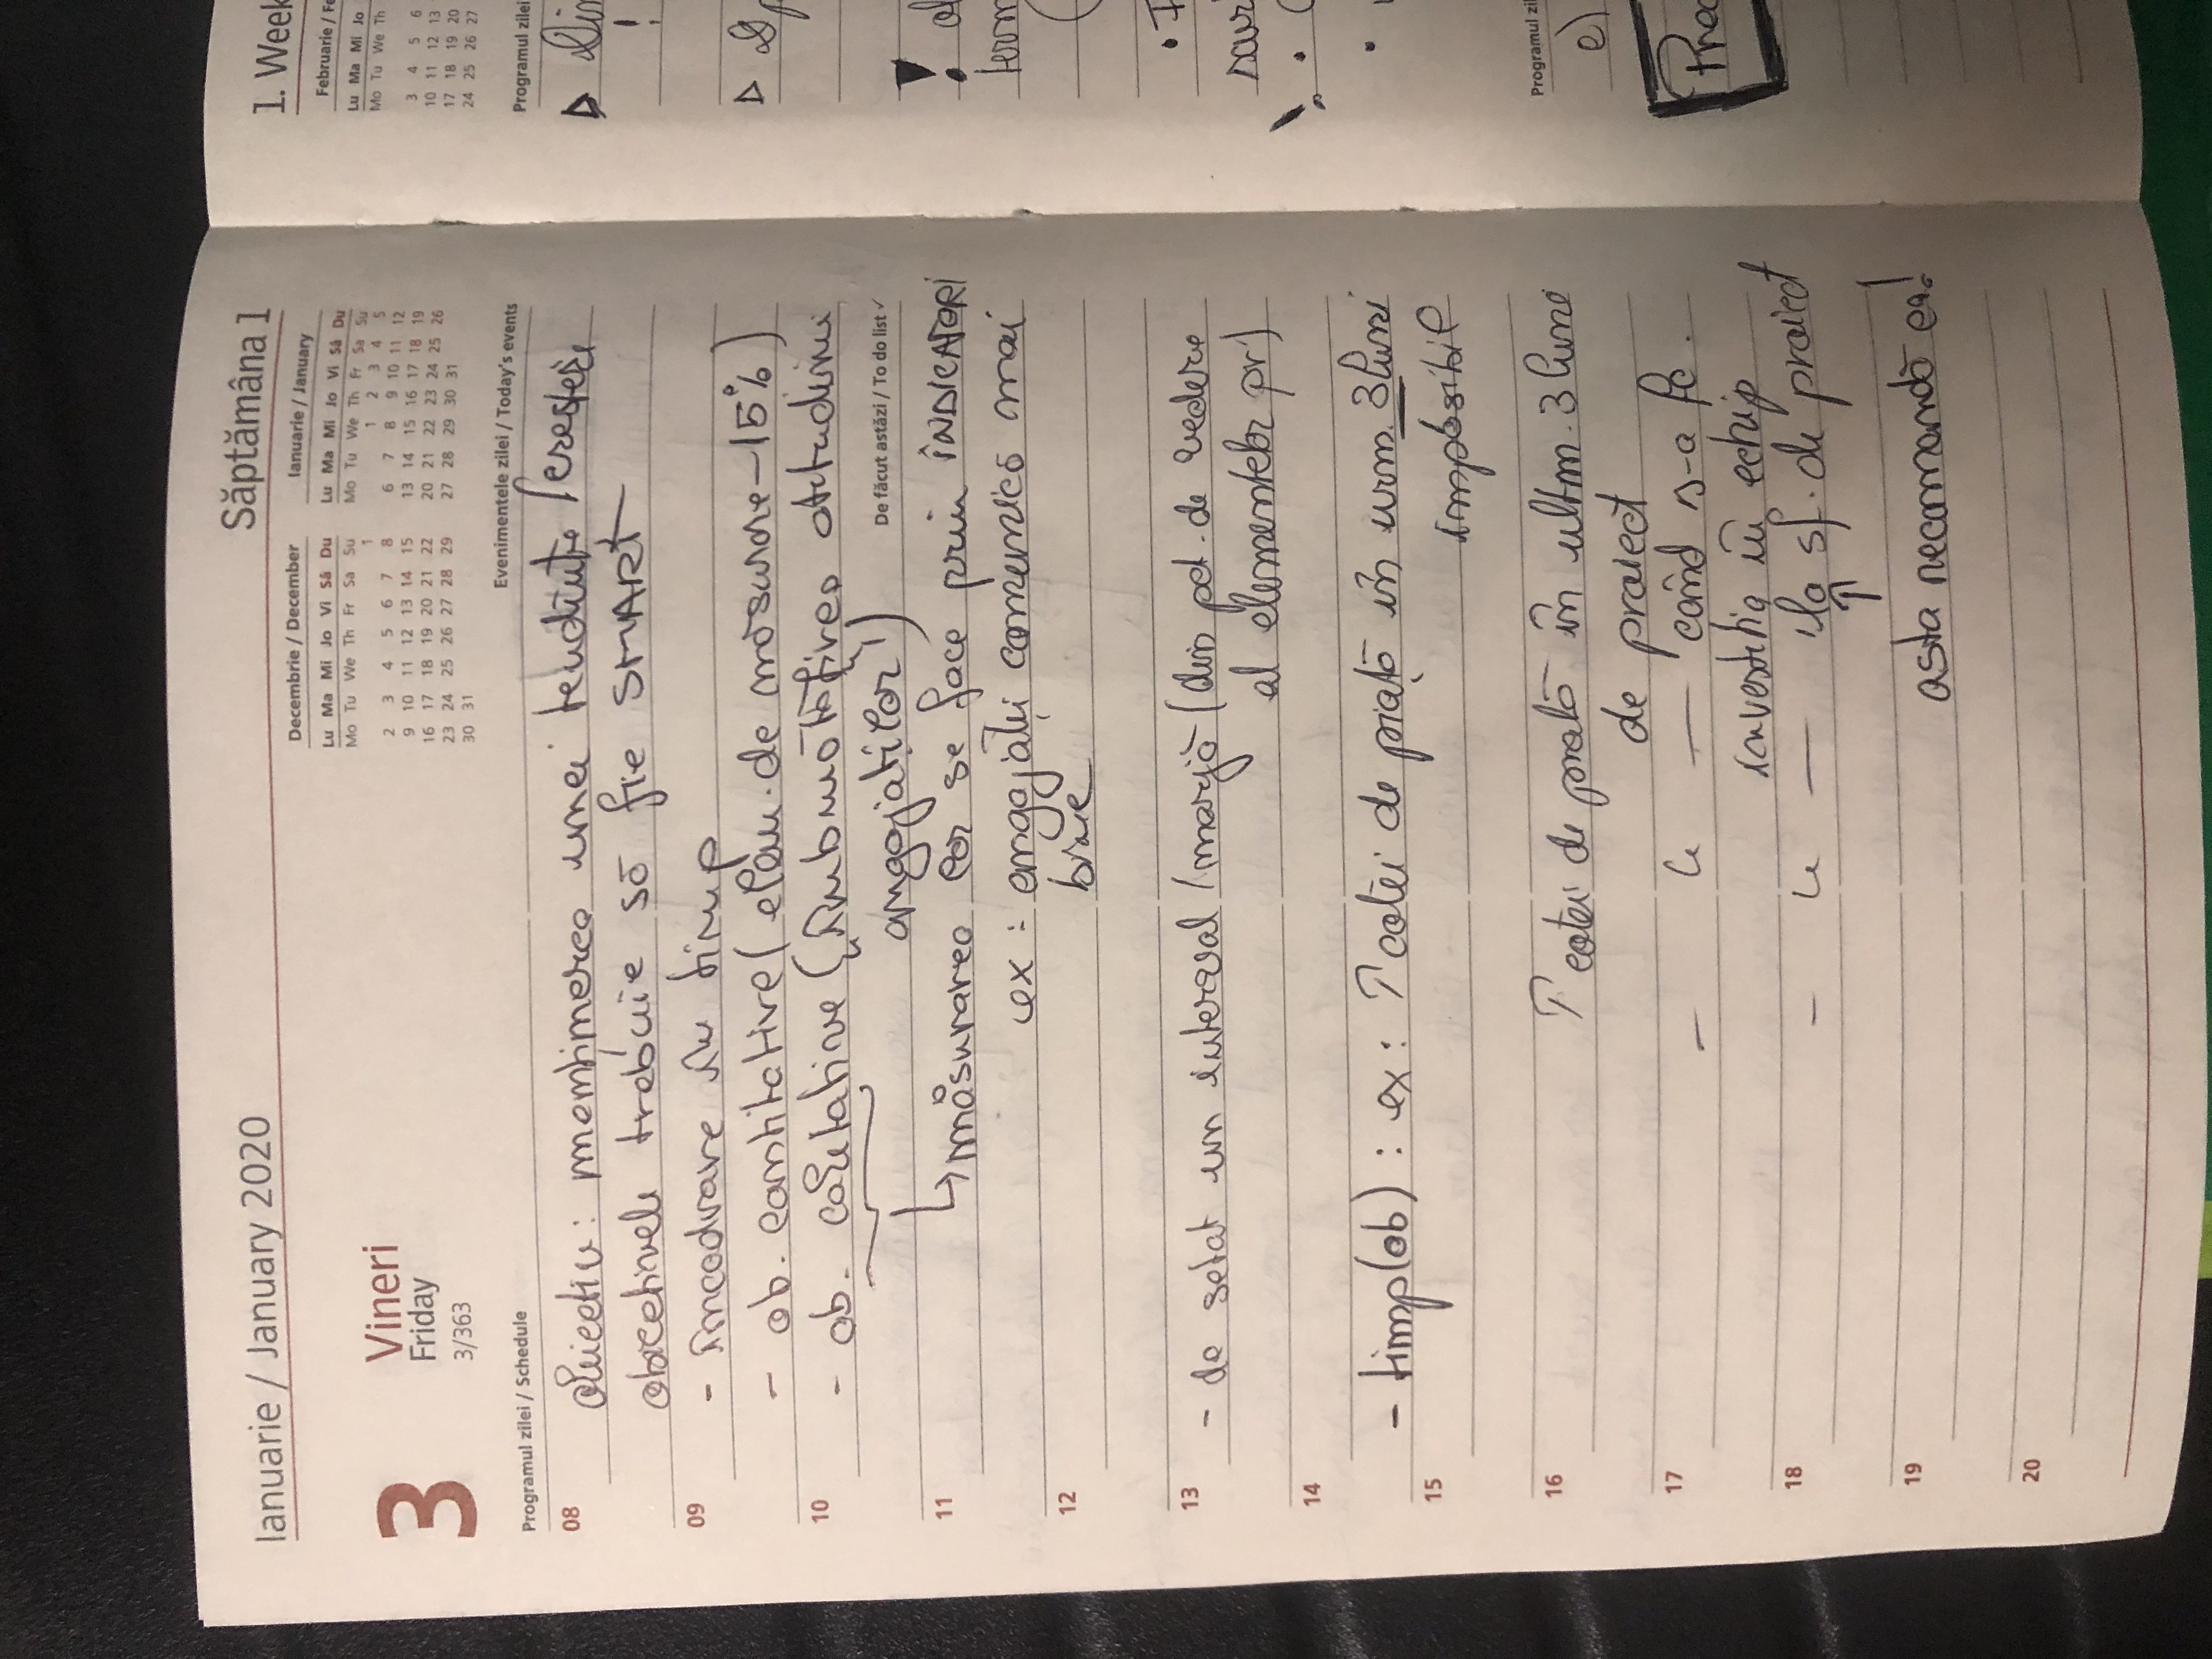 Ianuarie / January 2020
Săptămâna 1
3
Vineri
Friday
3/363
Decembrie / December
Lu Ma Mi Jo Vi Sâ Du
Mo Tu We Th Fr Sa Su
1
2 3 4 5 6 7 8
9 10 11 12 13 14 15
16 17 18 19 20 21 22
23 24 25 26 27 28 29
30 31
Ianuarie / January
Lu Ma Mi Jo Vi Sâ Du
Mo Tu We Th Fr Sa Su
1 2 3 4 5
6 7 8 9 10 11 12
13 14 15 16 17 18 19
20 21 22 23 24 25 26
27 28 29 30 31
Programul zilei / Schedule
Evenimentele zilei / Today's events
08 obiectiv: menținerea unei tendințe /creșteri
obiectivele trebuie să fie SMART
09 - încadrare în timp
- ob. cantitative (elem. de măsurare - 15%)
10 - ob. calitative („îmbunătățirea atitudinii
angajaților")
De făcut astăzi / To do list ✓
11 ↳ măsurarea lor se face prin INDICATORI
ex: angajații comunică mai
12 bine
13 - de setat un interval / marjă (din pct. de vedere
al elementelor pr)
14
- timp(ob) : ex: ↑ cotei de piață în urm. 3 luni
15 imposibil
16 ↑ cotei de piață în ultm. 3 luni
de proiect
17 - 〃 - când s-a fc.
investiția în echip
18 - 〃 - la sf. de proiect
↑
19 asta recomandă ea!
20
1. Week
Februarie / Fe
Lu Ma Mi Jo
Mo Tu We Th
3 4 5 6
10 11 12 13
17 18 19 20
24 25 26 27
Programul zilei
Programul zil
e)